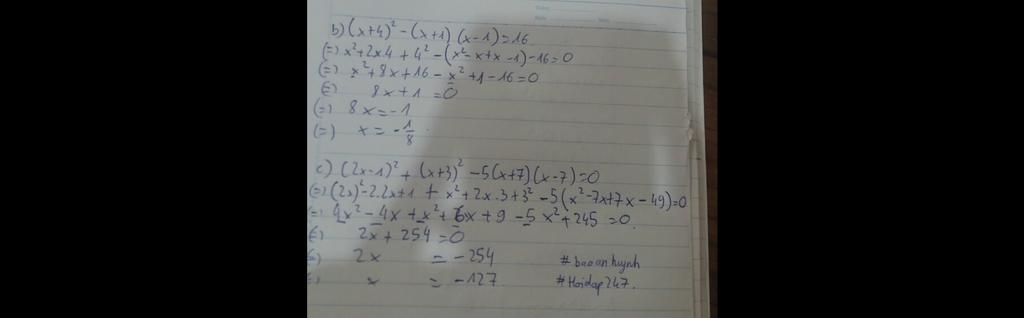 b) (x+4)² - (x+1) (x-1) = 16
(=) x² + 2x.4 + 4² - (x² - x + x - 1) - 16 = 0
(=) x² + 8x + 16 - x² + 1 - 16 = 0
(=) 8x + 1 = 0
(=) 8x = -1
(=) x = -1/8
c) (2x-1)² + (x+3)² - 5(x+7)(x-7) = 0
(=) (2x)² - 2.2x + 1 + x² + 2x.3 + 3² - 5(x² - 7x + 7x - 49) = 0
(=) 4x² - 4x + x² + 6x + 9 - 5x² + 245 = 0.
(=) 2x + 254 = 0
(=) 2x = -254 #baoanhuynh
(=) x = -127 #Hoidap247.